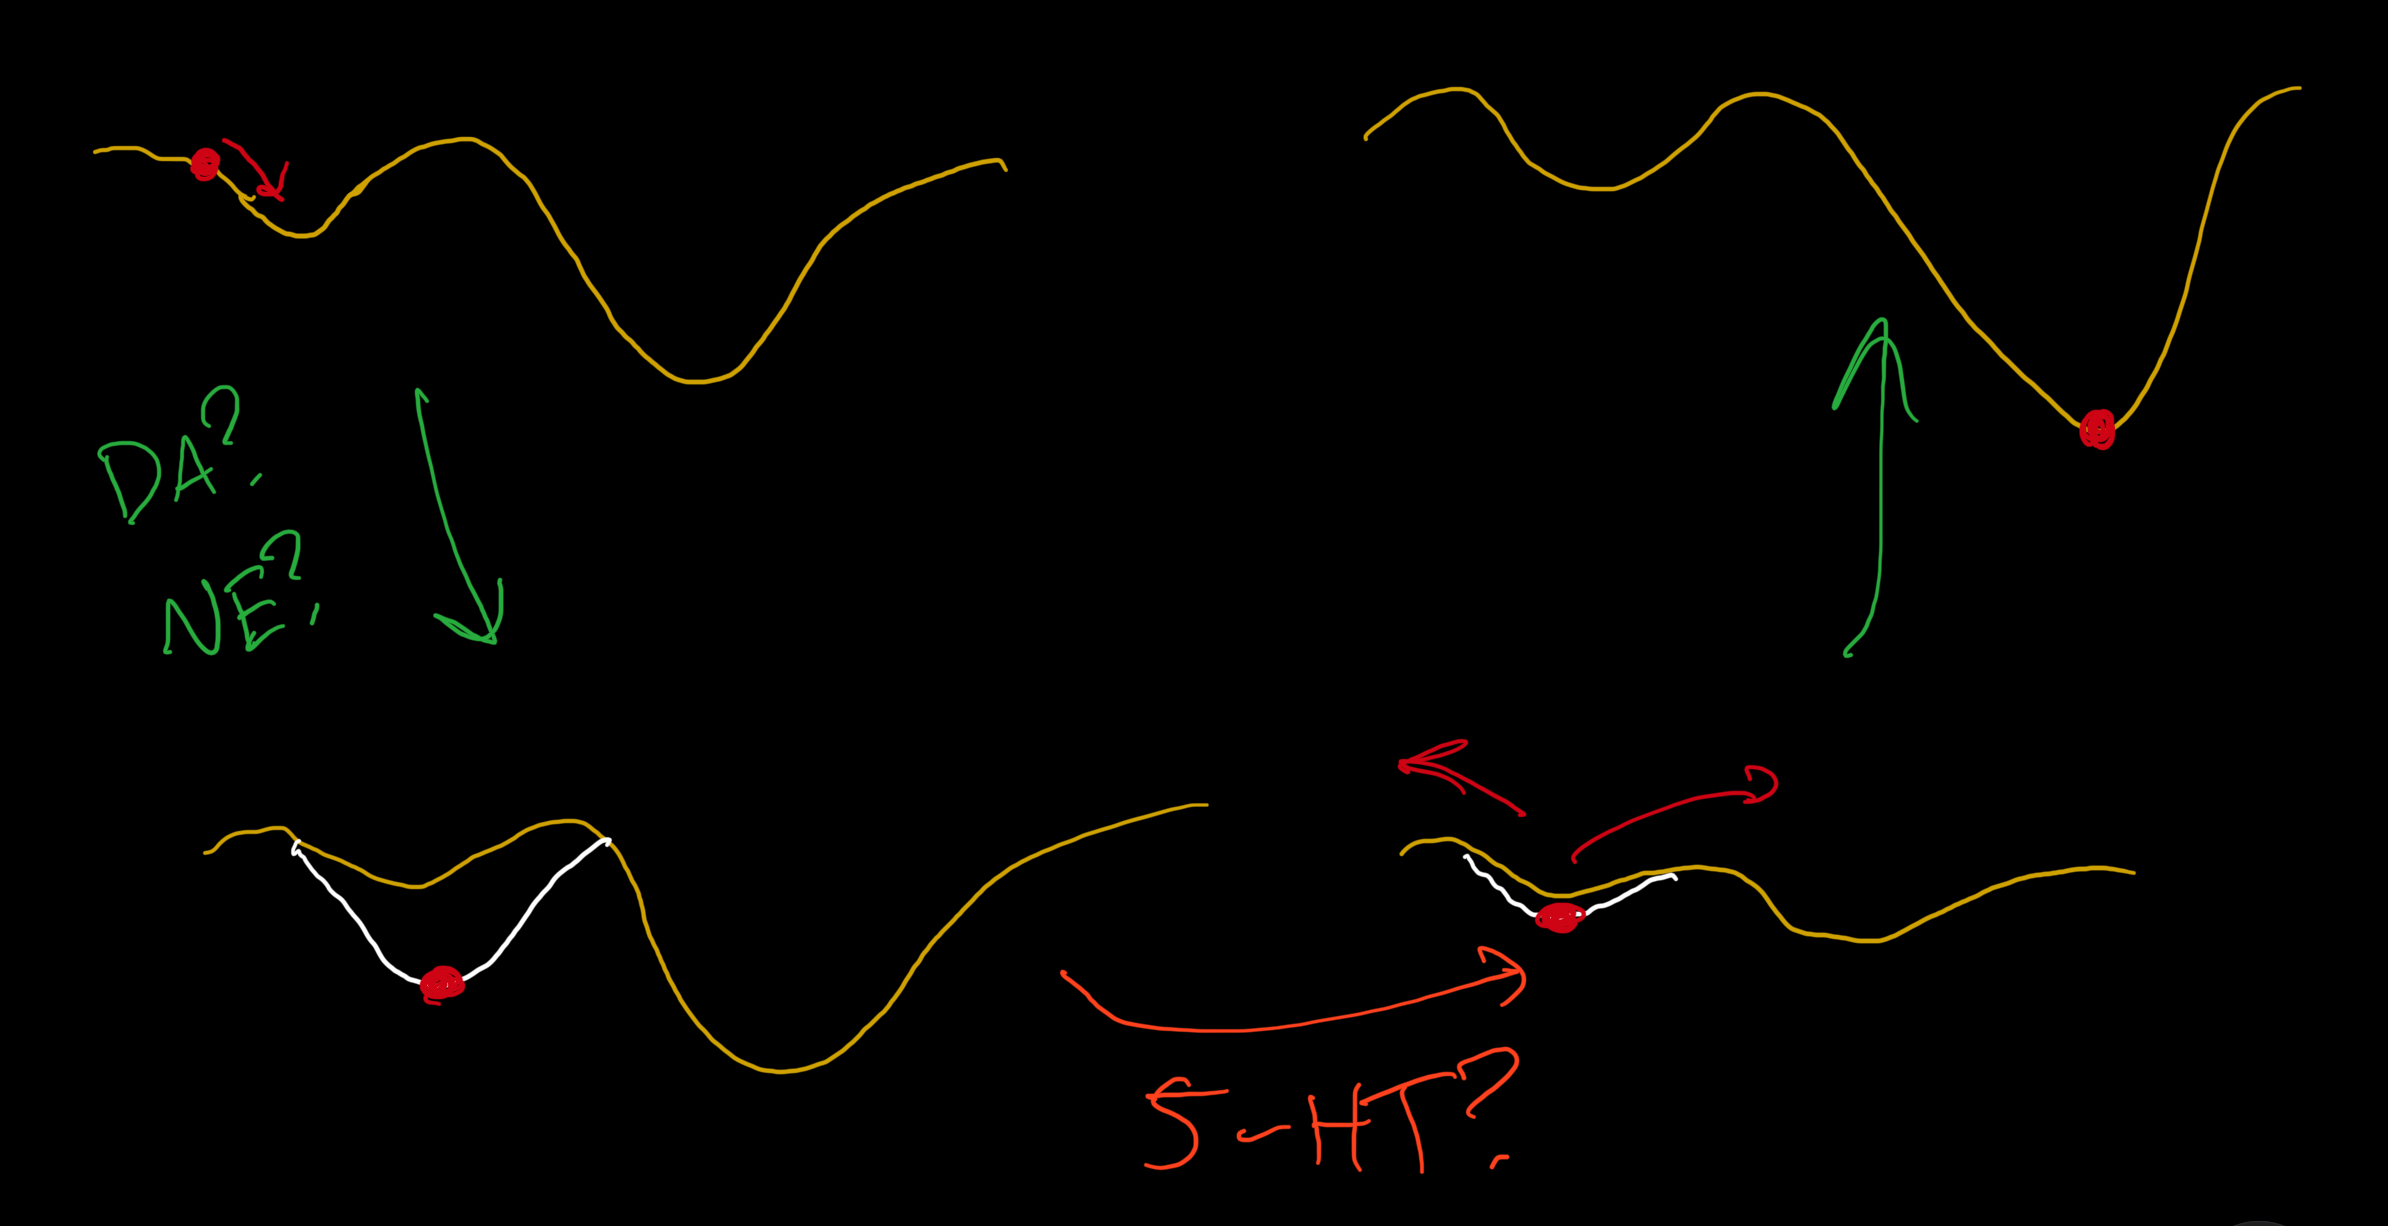 DA?
NE?
5-HT?